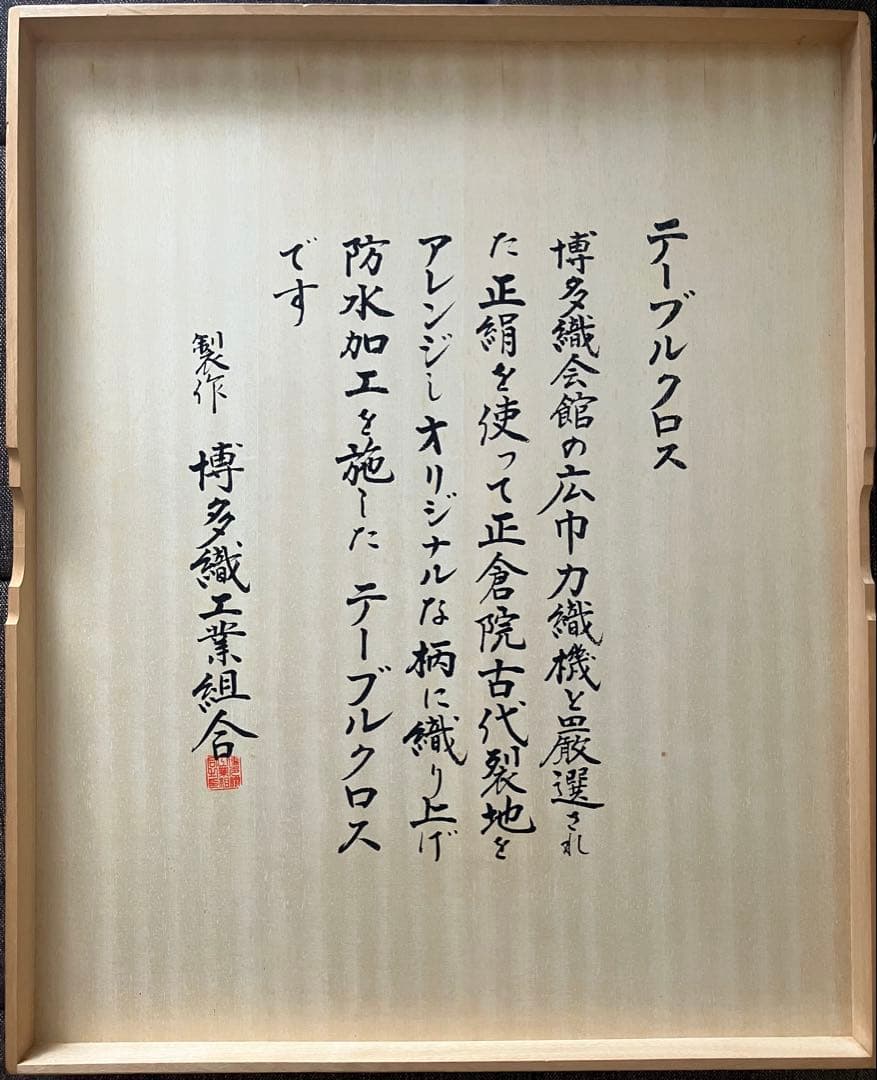 テーブルクロス
博多織会館の広巾力織機と厳選され
た正絹を使って正倉院古代裂地を
アレンジしオリジナルな柄に織り上げ
防水加工を施したテーブルクロス
です
製作 博多織工業組合